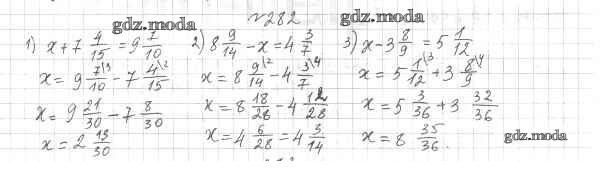 gdz.moda
№282
gdz.moda
1) x + 7 4/15 = 9 7/10
x = 9 7/10\3 - 7 4/15\2
x = 9 21/30 - 7 8/30
x = 2 13/30
2) 8 9/14 - x = 4 3/7
x = 8 9/14\2 - 4 3/7\4
x = 8 18/28 - 4 12/28
x = 4 6/28 = 4 3/14
3) x - 3 8/9 = 5 1/12
x = 5 1/12\3 + 3 8/9\4
x = 5 3/36 + 3 32/36
x = 8 35/36.
gdz.moda